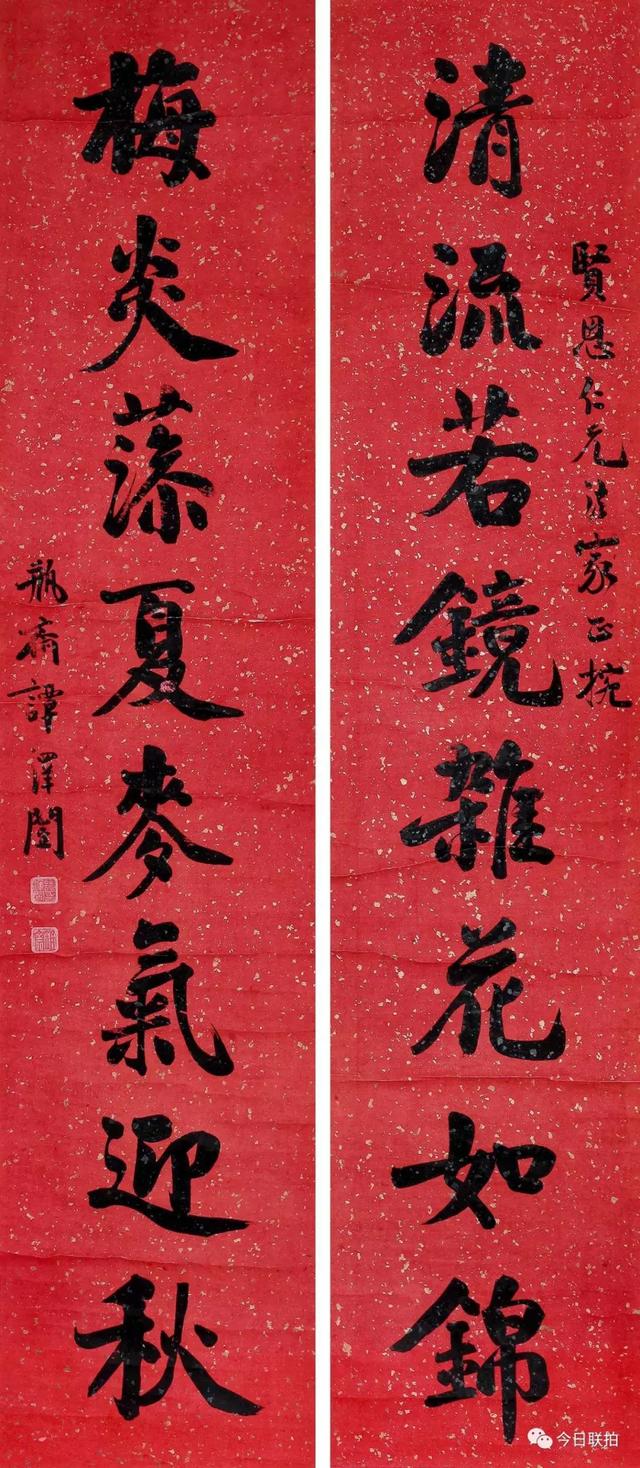 清流若鏡雜花如錦
賢恩仁兄法家正捥
梅炎藻夏麥氣迎秋
瓶齋譚澤闓
今日联拍